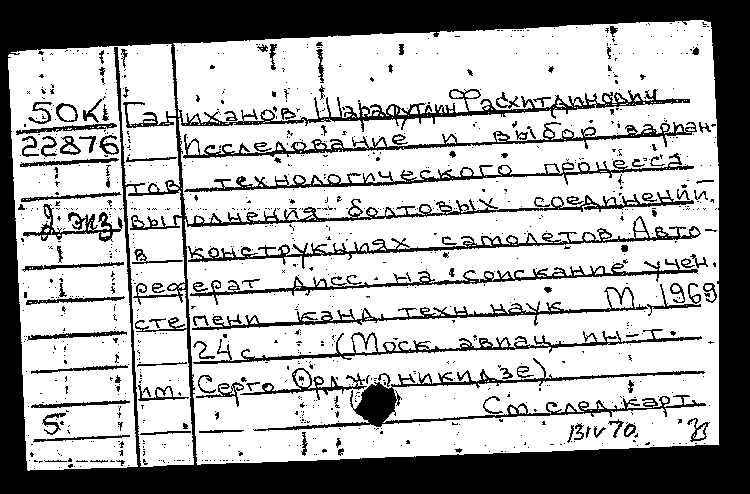 50К Ганиханов, Шарафутдин Фасхитдинович
22876 Исследование и выбор вариан-
тов технологического процесса
2 экз. выполнения болтовых соединений
в конструкциях самолетов. Авто-
реферат дисс. на соискание учен.
степени канд. техн. наук М., 1969
24 с. (Моск. авиац. ин-т.
им. Серго Орджоникидзе).
5 См. след. карт.
70.